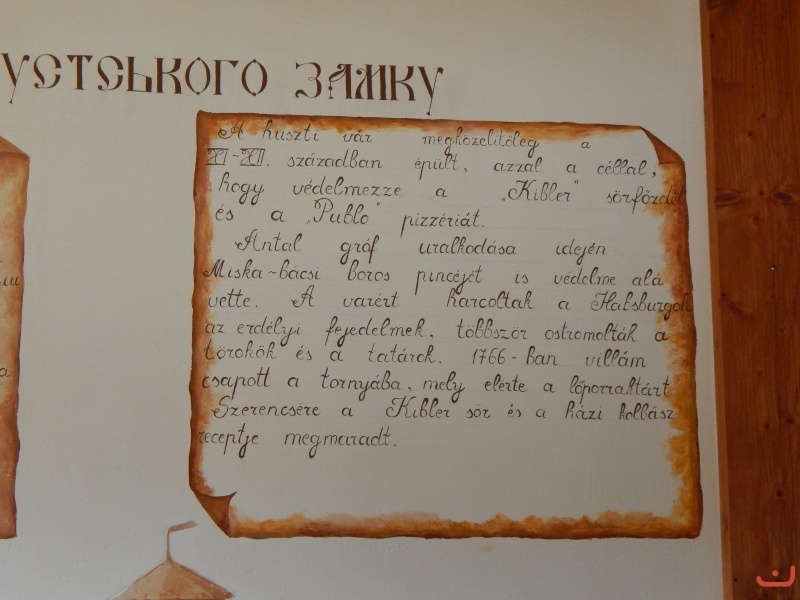 УСТСЬКОГО ЗАМКУ
A huszti vár megközelítöleg a
XI-XII. században épült, azzal a céllal,
hogy védelmezze a „Kibler” sörfőzdét
és a „Publo” pizzériát.
Antal gróf uralkodása idején
Miska-bácsi boros pincéjét is védelme alá
vette. A várért harcoltak a Habsburgok
az erdélyi fejedelmek, többször ostromolták a
törökök és a tatárok. 1766-ban villám
csapott a tornyába, mely elérte a lőporraktárt
Szerencsére a Kibler sör és a házi kolbász
receptje megmaradt.